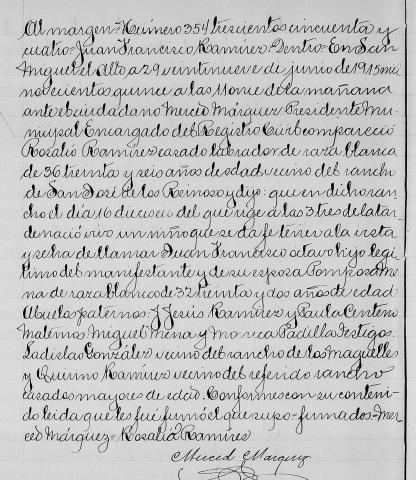 Al margen = Número 354 trescientos cincuenta y
cuatro = Juan Francisco Ramírez. Dentro = En San
Miguel el Alto a 29 veintinueve de junio de 1915 mil
novecientos quince a las 11 once de la mañana
ante el ciudadano Merced Márquez Presidente Mu-
nicipal Encargado del Registro Civil compareció
Rosalio Ramírez casado labrador de raza blanca
de 36 treinta y seis años de edad vecino del rancho
de San José de los Reinoso y dijo: que en dicho ran-
cho el día 16 dieciseis del que rige a las 3 tres de la tar-
de nació vivo un niño que se da fe tener a la vista
y se ha de llamar Juan Francisco octavo hijo legí-
timo del manifestante y de su esposa Pomposa Me-
na de raza blanca de 32 treinta y dos años de edad
Abuelos paternos: J. Jesús Ramírez y Paula Centeno
Maternos: Miguel Mena y Monica Padilla Testigos:
Ladislao González vecino del rancho de los Maguelles
y Quirino Ramírez vecino del referido rancho
casados mayores de edad. Conformes con su conteni-
do leida que les fué firmó el que supo = firmados = Mer-
ced Márquez = Rosalio Ramíres
Merced Marquez